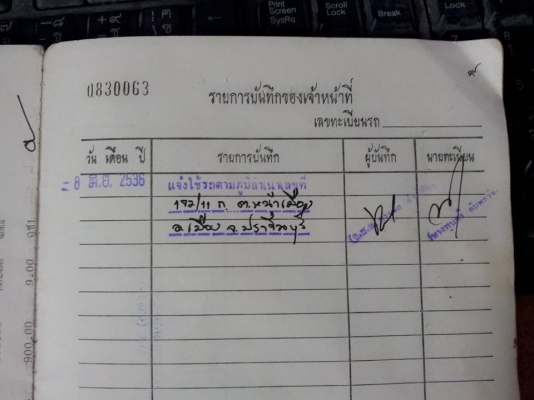 Print Screen SysRq
Scroll Lock
Pause
Break
๙
0830063
รายการบันทึกของเจ้าหน้าที่
เลขทะเบียนรถ
วัน เดือน ปี
รายการบันทึก
ผู้บันทึก
นายทะเบียน
- 8 เม.ย. 2536
แจ้งใช้รถตามภูมิลำเนาเลขที่
192/11 ก. ต.หน้าเมือง
อ.เมือง จ.ปราจีนบุรี
9.00
900.00